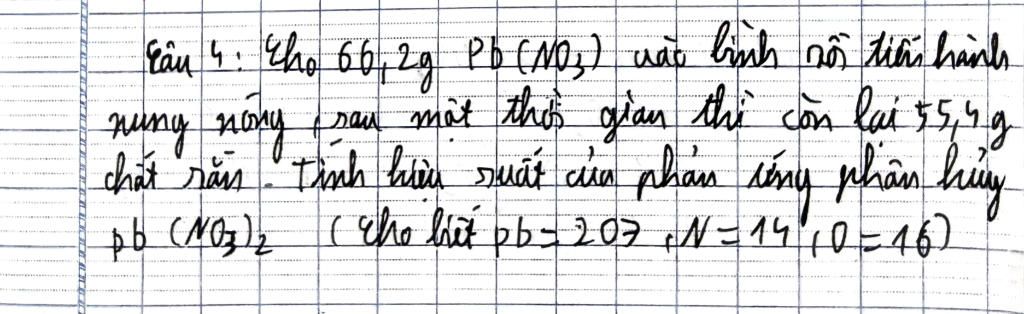 Câu 4: Cho 66,2g Pb(NO₃) vào bình rồi tiến hành
nung nóng, sau một thời gian thì còn lại 55,4g
chất rắn. Tính hiệu suất của phản ứng phân hủy
pb (NO₃)₂ (Cho biết pb = 207, N = 14, O = 16)